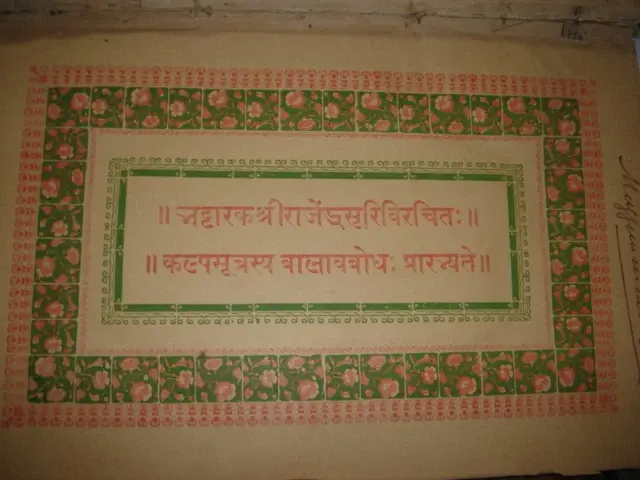 ॥ भट्टारकश्रीराजेंद्रसूरिविरचितः॥
॥ कल्पसूत्रस्य बालावबोधः प्रारभ्यते॥